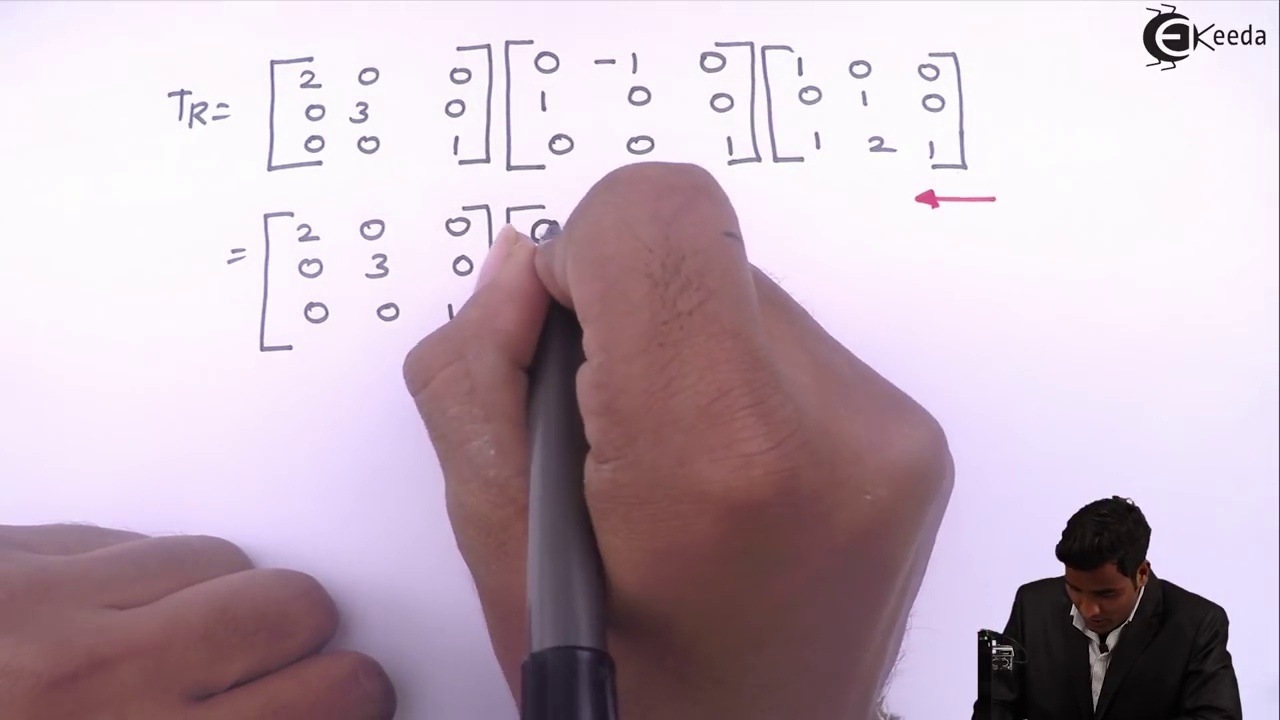 EKeeda
TR= [ 2 0 0 ] [ 0 -1 0 ] [ 1 0 0 ]
0 3 0 1 0 0 0 1 0
0 0 1 0 0 1 1 2 1
= [ 2 0 0 ] [ 0
0 3 0
0 0 1